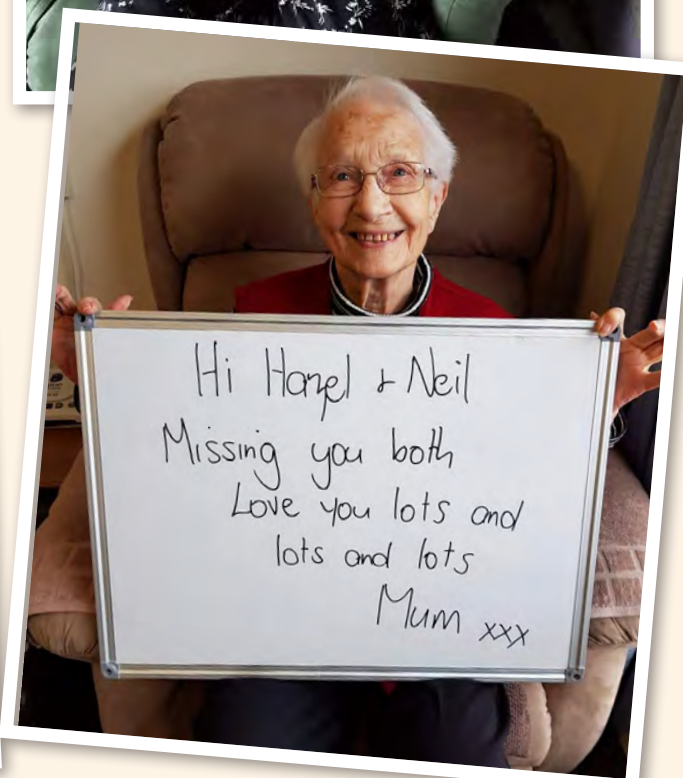 Hi Hazel & Neil
Missing you both
Love you lots and
lots and lots
Mum xxx